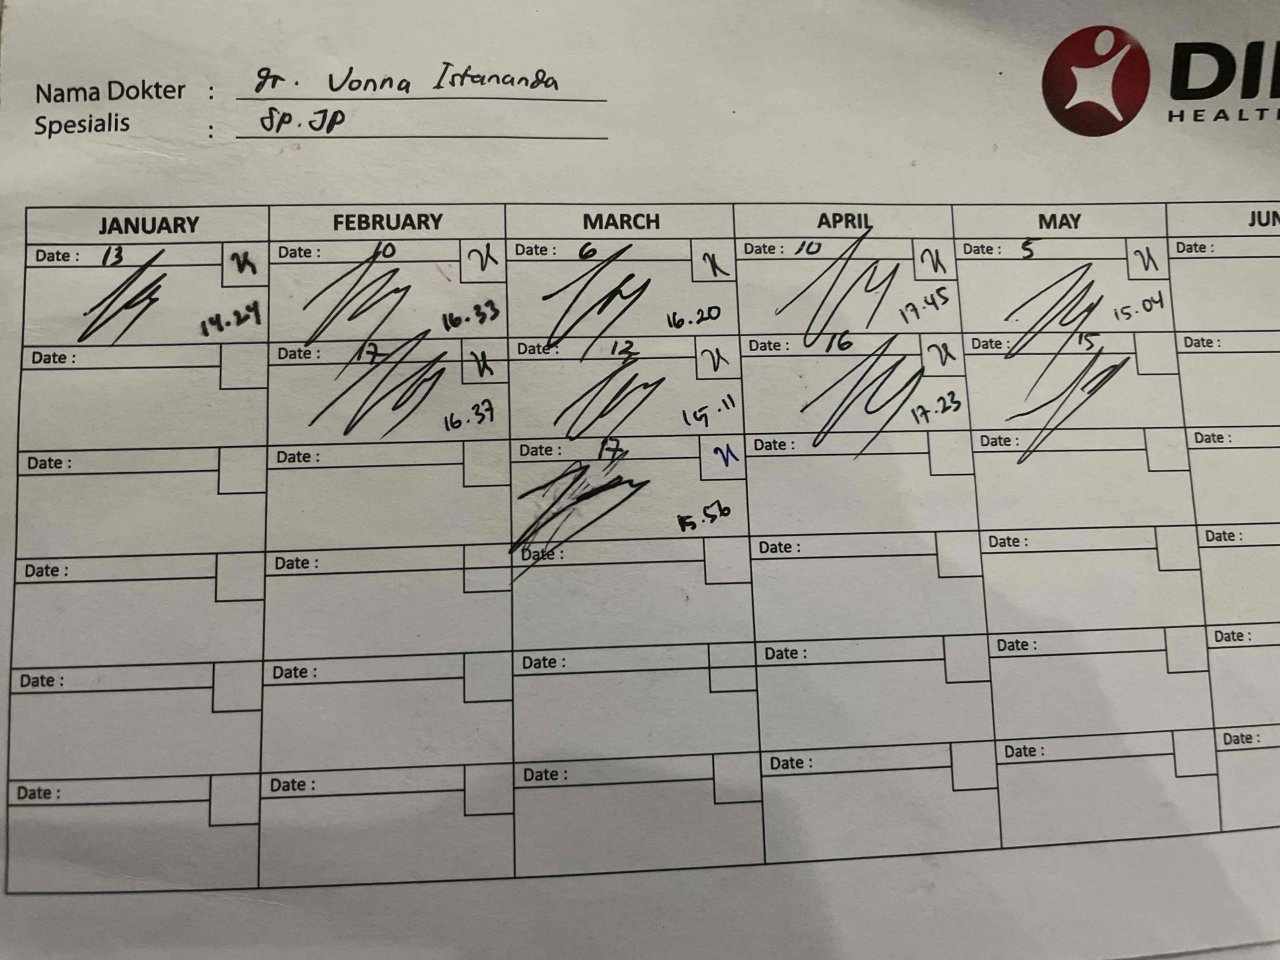 Nama Dokter : dr. Vonna Istananda
Spesialis : Sp. JP
DI
HEALT
JANUARY FEBRUARY MARCH APRIL MAY JUN
Date : 13 Date : 10 Date : 6 Date : 10 Date : 5 Date :
14.24 16.33 16.20 17.45 15.04
Date : Date : 17 Date : 12 Date : 16 Date : 15 Date :
16.37 15.11 17.23
Date : Date : Date : 17 Date : Date : Date :
15.56
Date : Date : Date : Date : Date : Date :
Date : Date : Date : Date : Date : Date :
Date : Date : Date : Date : Date : Date :